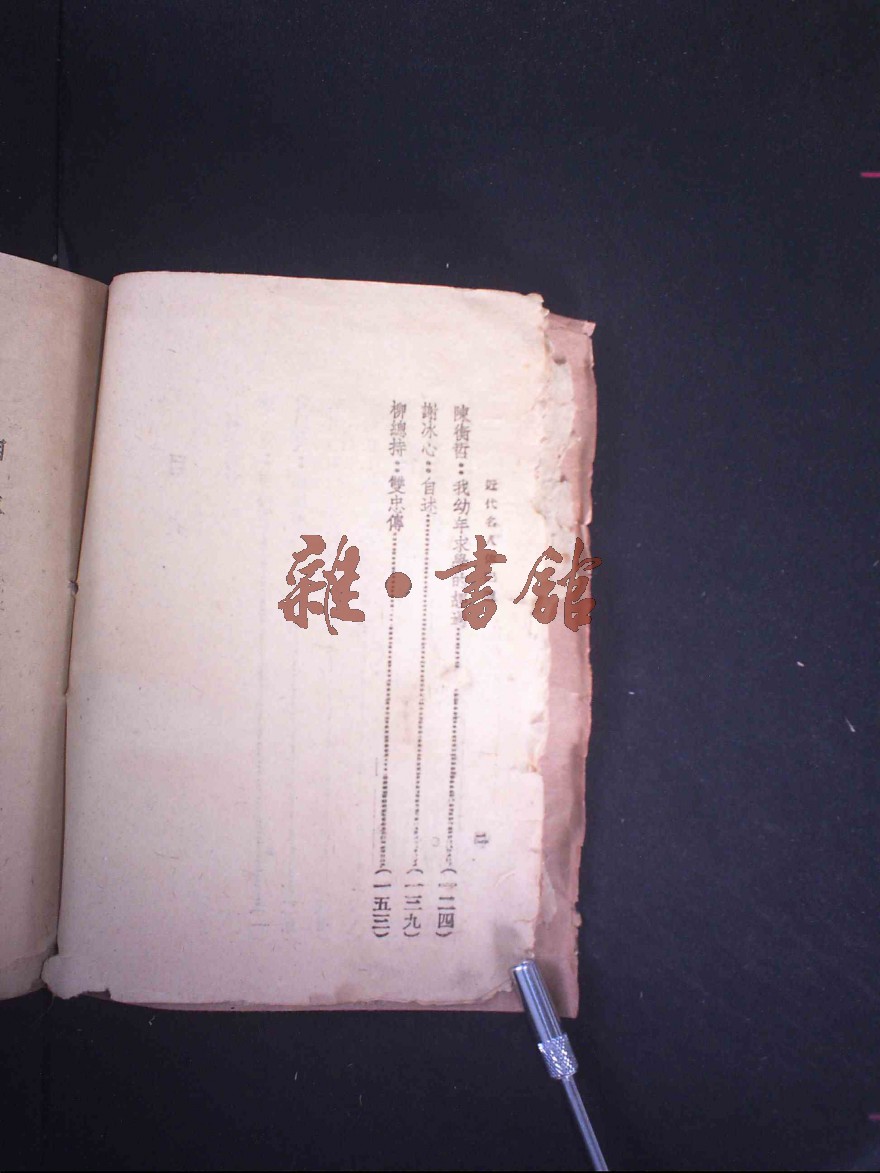 近代名
二
陳衡哲：我幼年求學的經過……（一二四）
謝冰心：自述……（一三九）
柳總持：雙忠傳……（一五三）
雜·書館